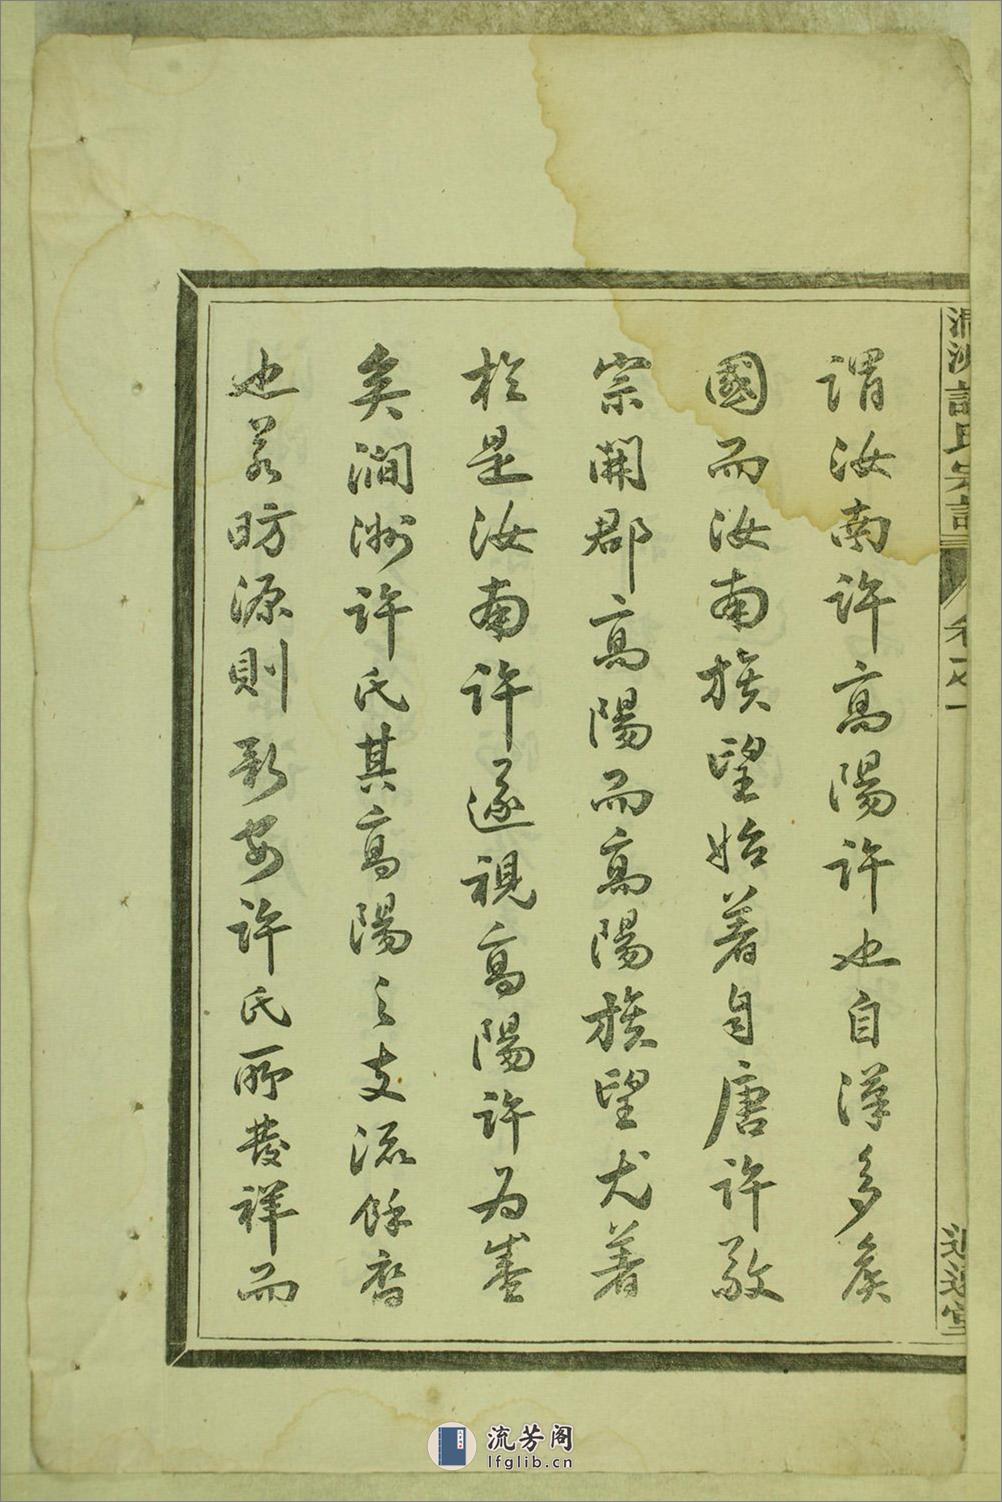 謂汝南許高陽許也自漢多矦
國而汝南族望始著自唐許敬
宗開郡高陽而高陽族望尤著
於是汝南許遂視高陽許為盛
矣澗洲許氏其高陽之支流餘裔
也若昉源則新安許氏所發祥而
許氏宗譜
卷之一
堂
流芳阁
lfglib.cn